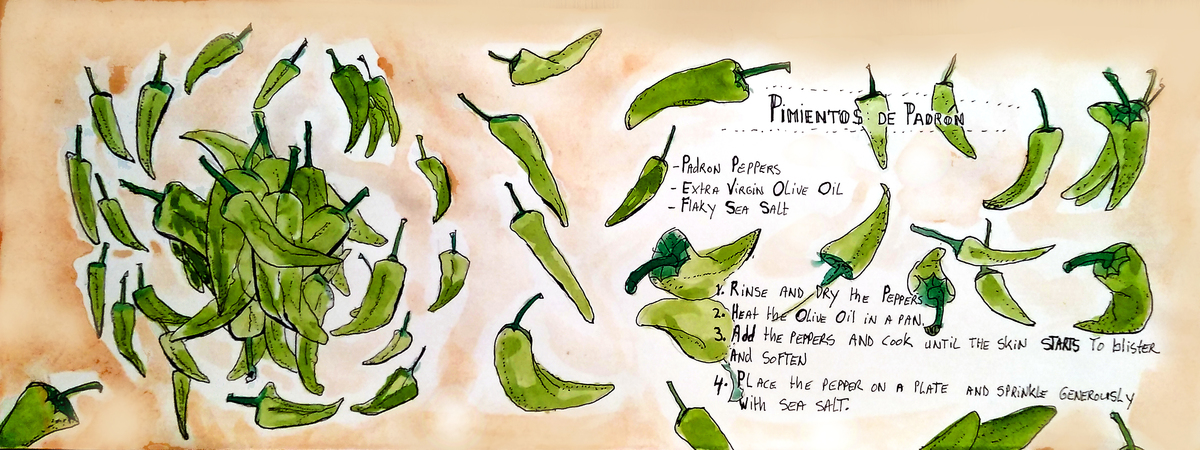 PIMIENTOS DE PADRON
- PADRON PEPPERS
- EXTRA VIRGIN OLIVE OIL
- FLAKY SEA SALT
1. RINSE AND DRY the PEPPERS
2. HEAt the OLIVE OIL IN A PAN.
3. Add the PEPPERS AND COOK UNTIL THE SKIN STARTS TO blister
AND SOFTEN
4. PLACE the PEPPER ON A PLATE AND SPRINKLE GENEROUSLY
With SEA SALT.